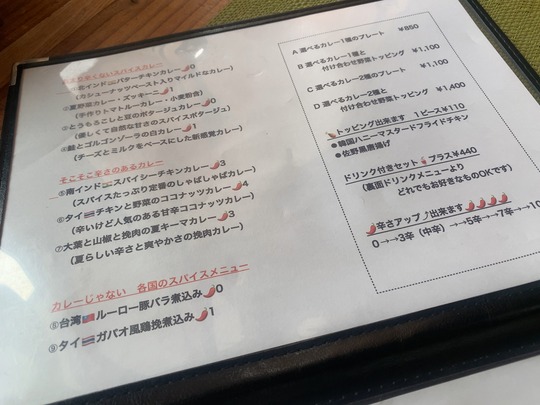 辛くないスパイスカレー
北インド🇮🇳バターチキンカレー🌶0
(カシューナッツペースト入りマイルドなカレー)
②夏野菜カレー・ズッキーニ🌶1
(手作りトマトルーカレー・小麦粉含)
③とうもろこしと豆のポタージュカレー🌶0
(優しくて自然な甘さのスパイスポタージュ)
④鮭とゴルゴンゾーラの白カレー🌶1
(チーズとミルクをベースにした新感覚カレー)
そこそこ辛さのあるカレー
⑤南インド🇮🇳スパイシーチキンカレー🌶3
(スパイスたっぷり定番のしゃばしゃばカレー)
⑥タイ🇹🇭チキンと野菜のココナッツカレー🌶4
(辛いけど人気のある甘辛ココナッツカレー)
⑦大葉と山椒と挽肉の夏キーマカレー🌶3
(夏らしい辛さと爽やかさの挽肉カレー)
カレーじゃない 各国のスパイスメニュー
⑧台湾🇹🇼ルーロー豚バラ煮込み🌶0
⑨タイ🇹🇭ガパオ風鶏挽煮込み🌶1
A 選べるカレー1種のプレート ¥850
B 選べるカレー1種と
付け合わせ野菜トッピング ¥1,100
C 選べるカレー2種のプレート ¥1,100
D 選べるカレー2種と
付け合わせ野菜トッピング ¥1,400
🍗トッピング出来ます 1ピース¥110
●韓国ハニーマスタードフライドチキン
●佐野黒唐揚げ
ドリンク付きセット🍹プラス¥440
(裏面ドリンクメニューより
どれでもお好きなものOKです)
🌶辛さアップ⤴出来ます🌶🌶🌶🌶
0→→3辛(中辛)→→5辛→→7辛→→10